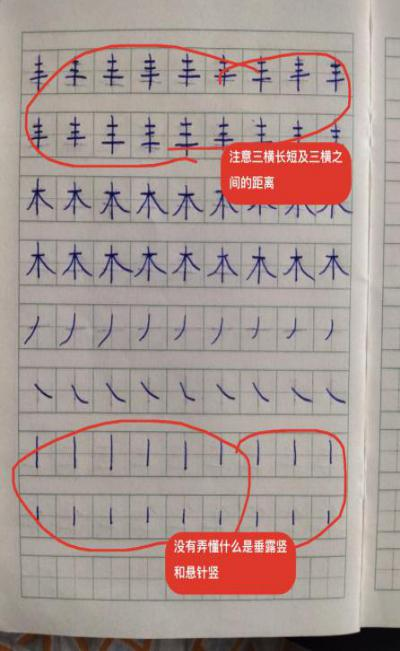 丰丰丰丰丰丰丰丰丰
丰丰丰丰丰丰丰丰丰
注意三横长短及三横之
间的距离
木木木木木木木木木
木木木木木木木木木
丿丿丿丿丿丿丿丿丿
㇏㇏㇏㇏㇏㇏㇏㇏㇏
丨丨丨丨丨丨丨丨丨
丨丨丨丨丨丨丨丨丨
没有弄懂什么是垂露竖
和悬针竖